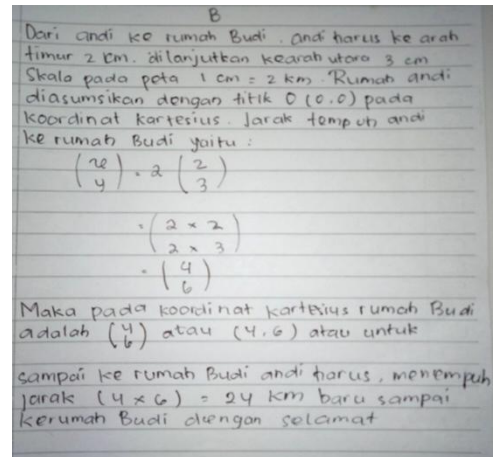 B
Dari andi ke rumah Budi. andi harus ke arah
timur 2 cm. dilanjutkan kearah utara 3 cm
Skala pada peta 1 cm = 2 km. Rumah andi
diasumsikan dengan titik O (0.0) pada
koordinat kartesius. Jarak tempuh andi
ke rumah Budi yaitu :
(x y) = 2 (2 3)
= (2 x 2 2 x 3)
= (4 6)
Maka pada koordinat kartesius rumah Budi
adalah (4 6) atau (4.6) atau untuk
sampai ke rumah Budi andi harus, menempuh
jarak (4 x 6) = 24 km baru sampai
kerumah Budi dengan selamat